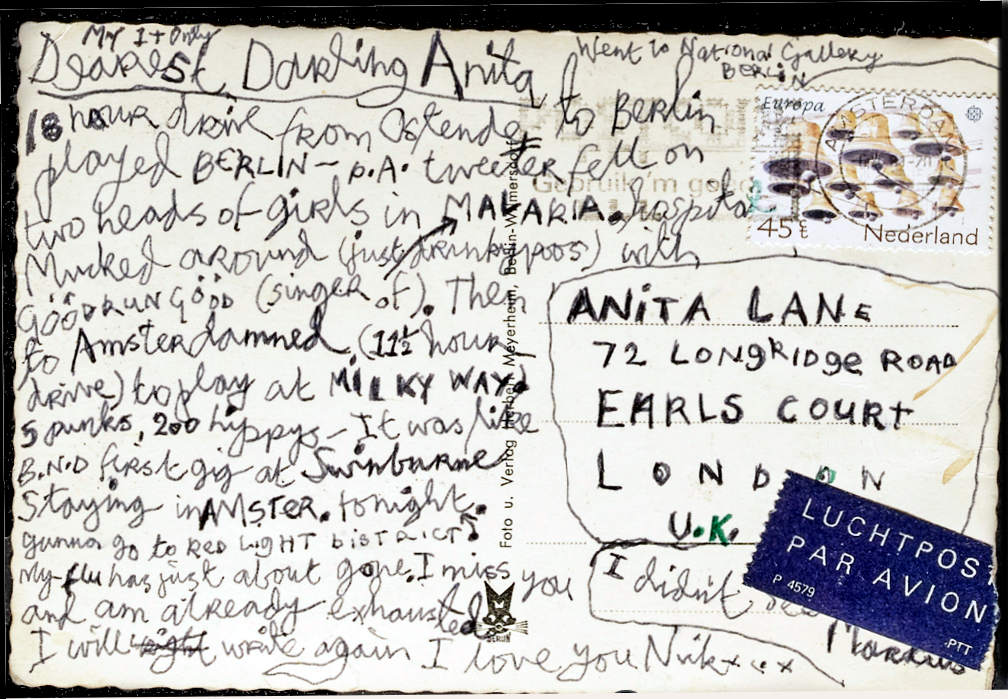 My 1 + Only
Dearest Darling Anita
Went to National Gallery
BERLIN
18 hour drive from Ostende to Berlin
played BERLIN - P.A. tweeter fell on
two heads of girls in MALARIA. hospital
Mucked around (just drinkypoos) with
GÖÖDRUN GÖÖD (singer of). Then
to Amsterdamned (11½ hour
drive) to play at MILKY WAY.
5 punks, 200 hippys - It was like
B.N.D first gig at Swinburne
Staying in AMSTER. tonight.
gunna go to RED LIGHT DISTRICT
My flu has just about gone. I miss you
and am already exhausted.
I will write again I love you Nick x x x
I didn't
Markus
ANITA LANE
72 LONGRIDGE ROAD
EARLS COURT
LONDON
U.K.
Europa
45 ct Nederland
AMSTERDAM
Gebruik 'm goed
LUCHTPOST
PAR AVION
P 4579
.PTT
Foto u. Verlag Herbert Meyerheim, Berlin-Wilmersdorf
BERLIN